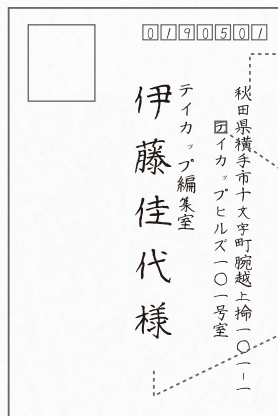 0190501
秋田県横手市十文字町腕越上掵一〇一-一
テイカップヒルズ一〇一号室
テイカップ編集室
伊藤佳代様